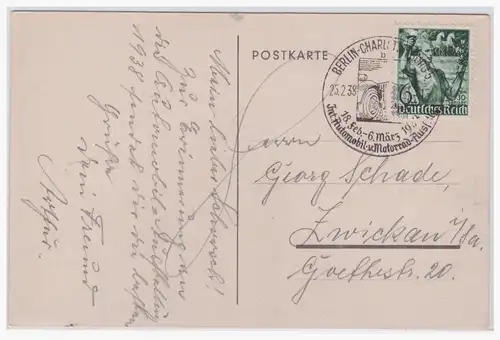 Mein lieber Schorsch!
Zur Erinnerung an
die Automobil-Ausstellung
1938 sendet dir die besten
Grüße
dein Freund
Arthur.
POSTKARTE
BERLIN-CHARL
b
25.2.38
18. Feb.-6. März
Int. Automobil-u. Motorrad-Ausst.
6
Deutsches Reich
Herrn
Georg Schade,
Zwickau i/Sa.
Goethestr. 20.